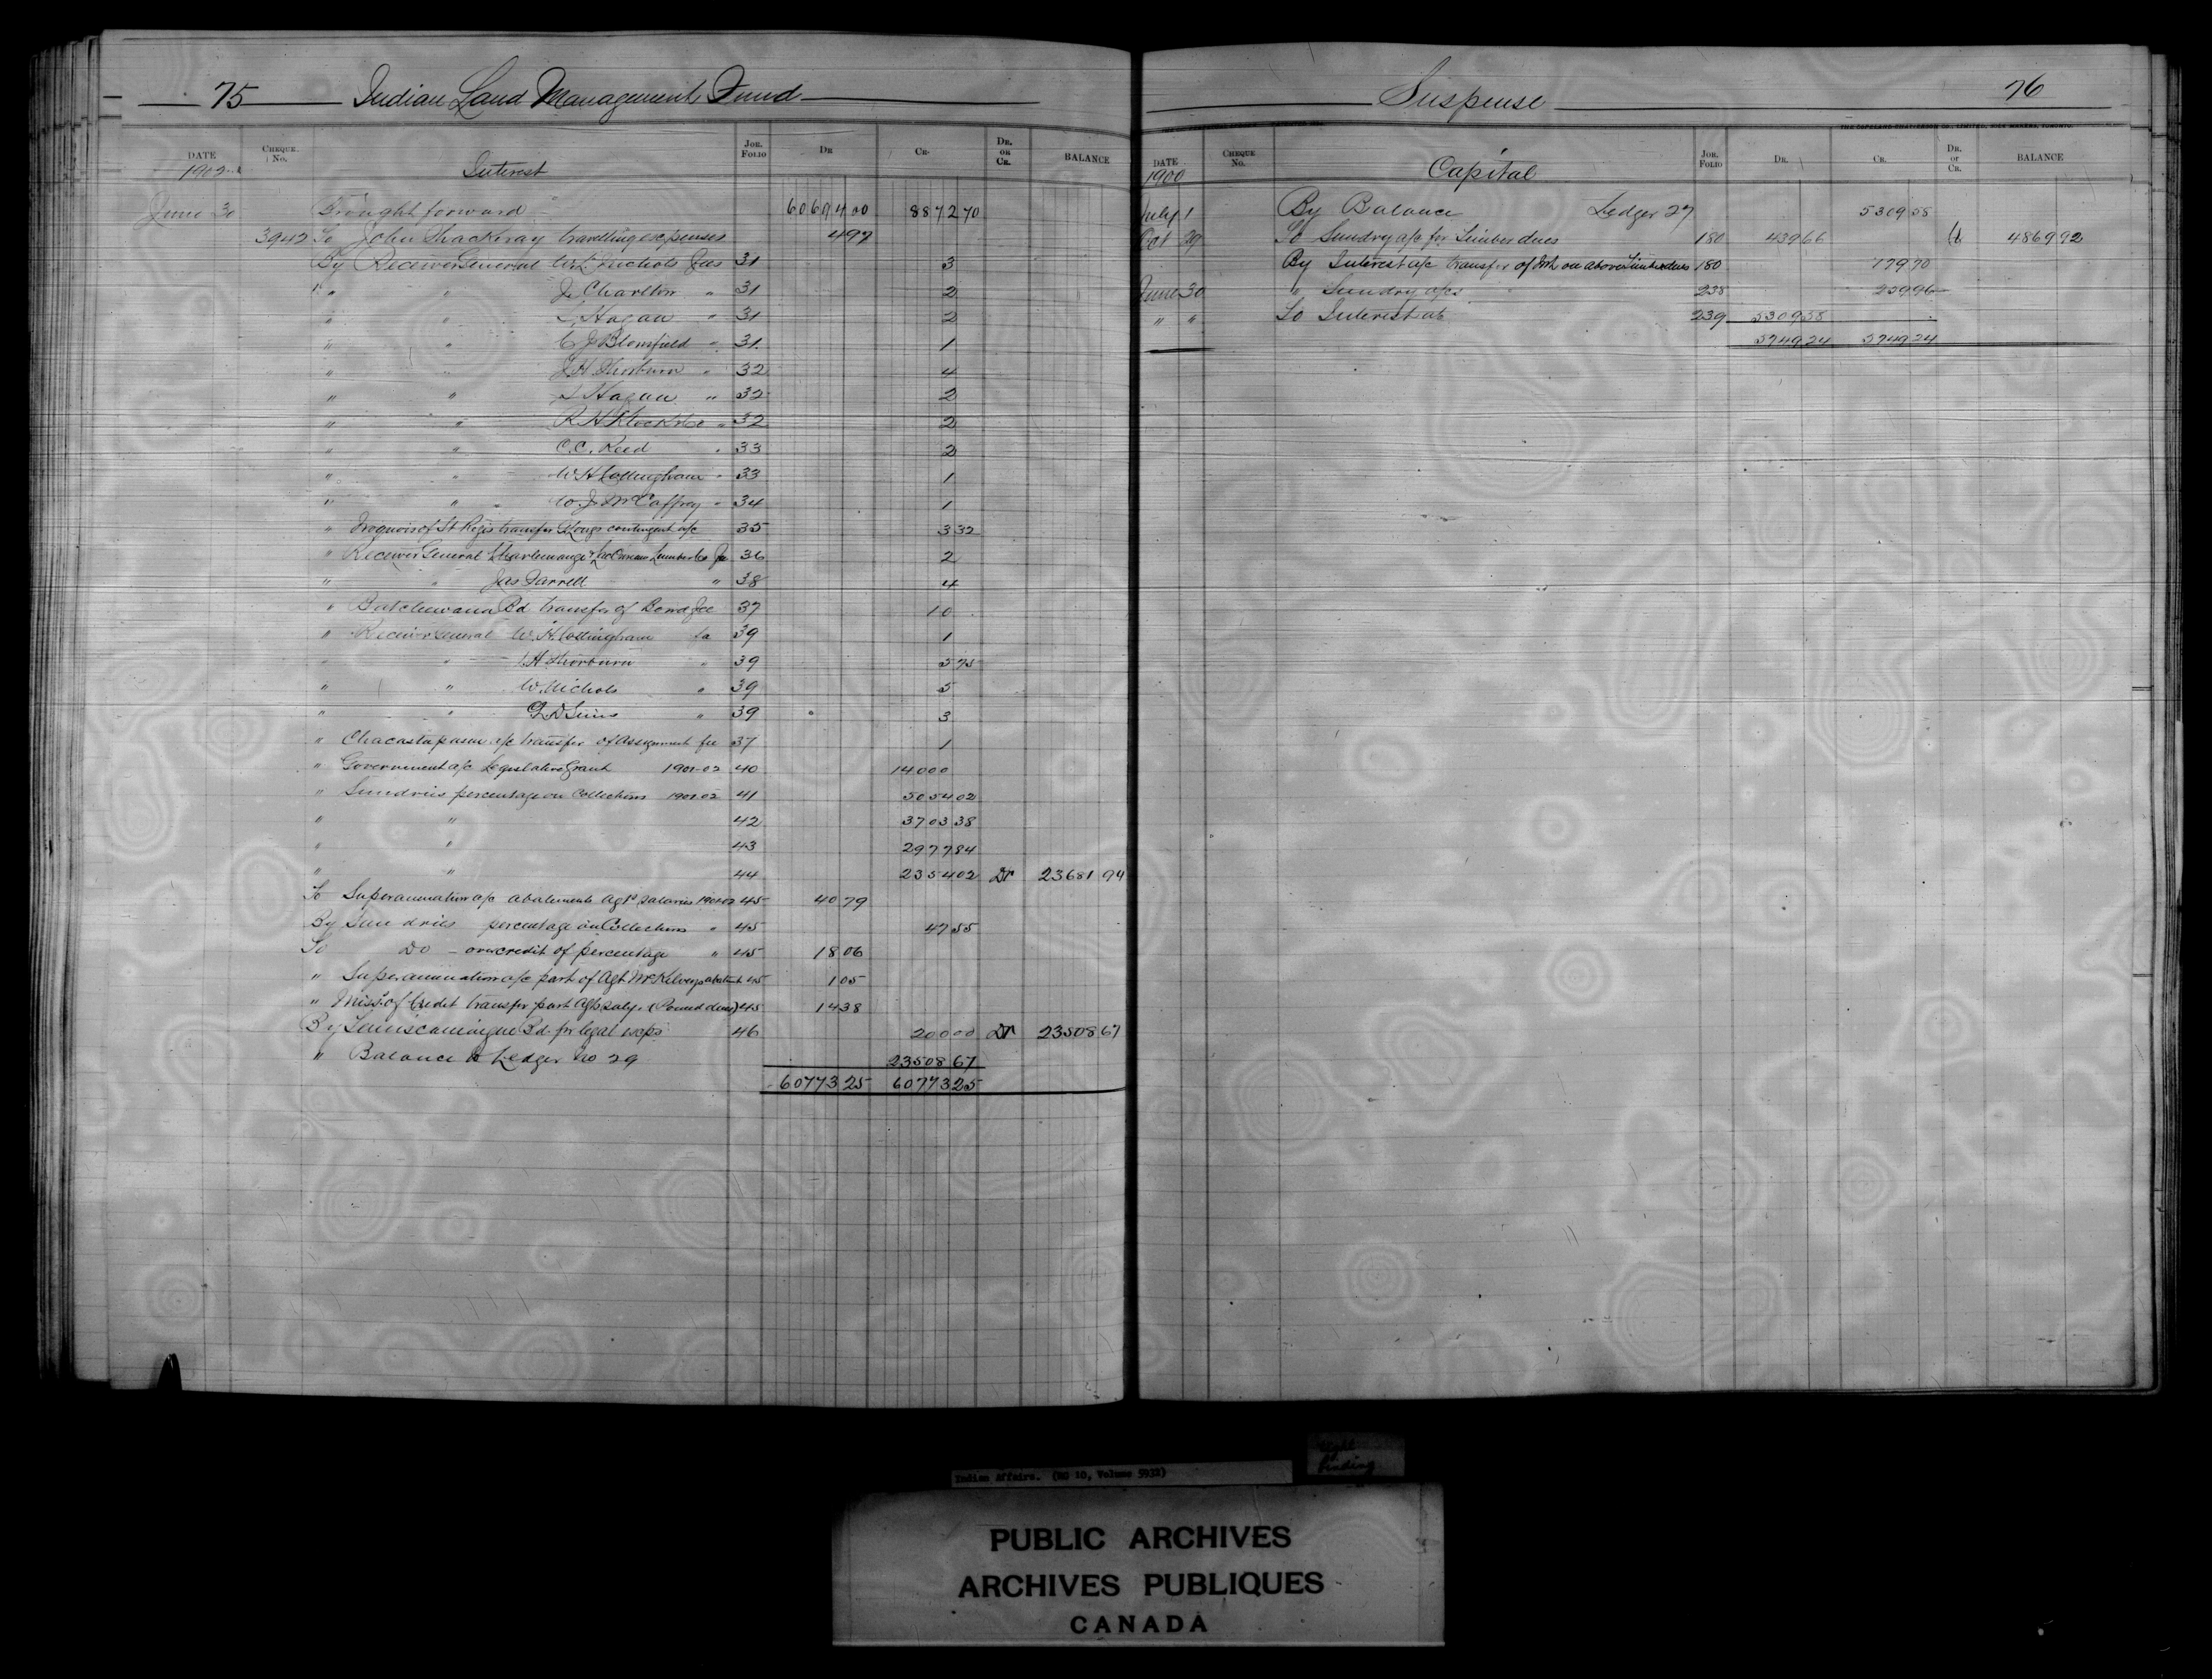 75 Indian Land Management Fund
DATE CHEQUE No. Interest JOR. FOLIO DR CR. DR. OR CR. BALANCE
1902
June 30 Brought forward 60694 00 8872 70
3942 To John Thackeray travelling expenses 4 97
By Receiver General Nichols fees 31 3
" " J. Charlton " 31 2
" " Hagan " 31 2
" " C J Blomfield " 31 1
" " J H Thorburn " 32 4
" " Hagan " 32 2
" " R H Klock & Co " 32 2
" " C.C. Reed " 33 2
" " W H Collingham " 33 1
" " W. J. McCaffrey " 34 1
" Iroquois of St Regis transfer Longs contingent a/c 35 3 32
" Receiver General Charlemange & Lac Lumber Co fee 36 2
" " Jas Farrell " 38 4
" Batchewana Bd transfer of Bond fee 37 10
" Receiver General W. H. Collingham 39 1
" " H Thorburn " 39 5 75
" " W. Nichols " 39 5
" " G D Sims " 39 3
" Chacastapasin a/c transfer of Assignment fee 37 1
" Government a/c Legislative Grant 1901-02 40 14000
" Sundries percentage on Collections 1901-02 41 5054 02
" " 42 3703 38
" " 43 2977 84
" " 44 2354 02 Dr 23681 94
To Superannuation a/c abatements Agts salaries 1901-02 45 40 79
By Sundries percentage on Collections " 45 47 55
To Do - overcredit of percentage " 45 18 06
" Superannuation a/c part of Agt McKelvey abatmt 45 1 05
" Miss. of Credit transfer part Agts saly. (Pound dues) 45 14 38
By Temiscamingue Bd. for legal exps 46 200 00 Dr 23508 67
" Balance to Ledger No 29 23508 67
60773 25 60773 25
Suspense 76
THE COPELAND-CHATTERSON CO., LIMITED, TORONTO.
DATE CHEQUE No. Capital JOR. FOLIO DR. CR. DR. or CR. BALANCE
1900
July 1 By Balance Ledger 27 5309 58
Oct 29 To Sundry a/c for Timber dues 180 439 66 Cr 4869 92
By Interest a/c transfer of Int on above Timber dues 180 179 70
June 30 " Sundry a/cs 238 259 96
" " To Interest a/c 239 5309 58
5749 24 5749 24
Indian Affairs. (RG 10, Volume 5932)
tight binding
PUBLIC ARCHIVES
ARCHIVES PUBLIQUES
CANADA